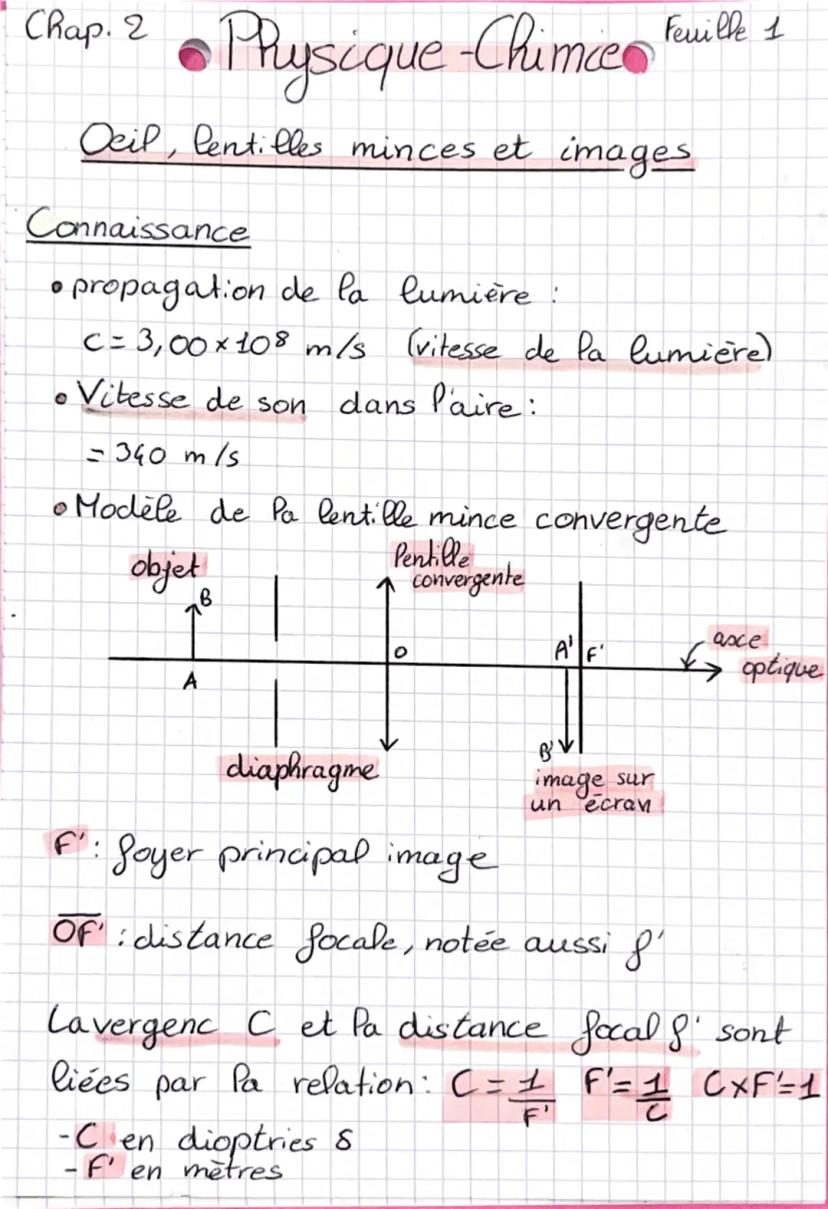 Chap. 2
Physique-Chimie
Feuille 1
Oeil, lentilles minces et images
Connaissance
• propagation de la lumière :
c = 3,00 × 10⁸ m/s (vitesse de la lumière)
• Vitesse de son dans l'aire :
= 340 m/s
• Modèle de la lentille mince convergente
objet
lentille
convergente
B
A
O
A' F'
axce
optique
B'
diaphragme
image sur
un écran
F' : foyer principal image
OF' : distance focale, notée aussi f'
La vergenc C et la distance focal f' sont
liées par la relation : C = 1/F' F' = 1/C C×F'=1
- C en dioptries δ
- F' en mètres